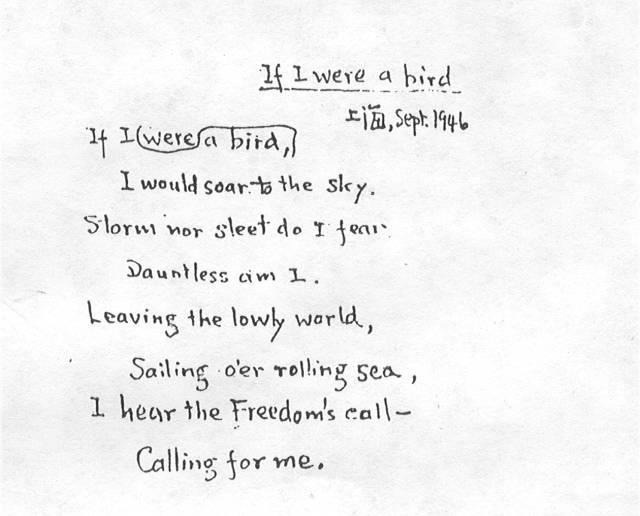 If I were a bird
上海, Sept. 1946
If I were a bird,
I would soar to the sky.
Storm nor sleet do I fear.
Dauntless am I.
Leaving the lowly world,
Sailing o'er rolling sea,
I hear the Freedom's call—
Calling for me.